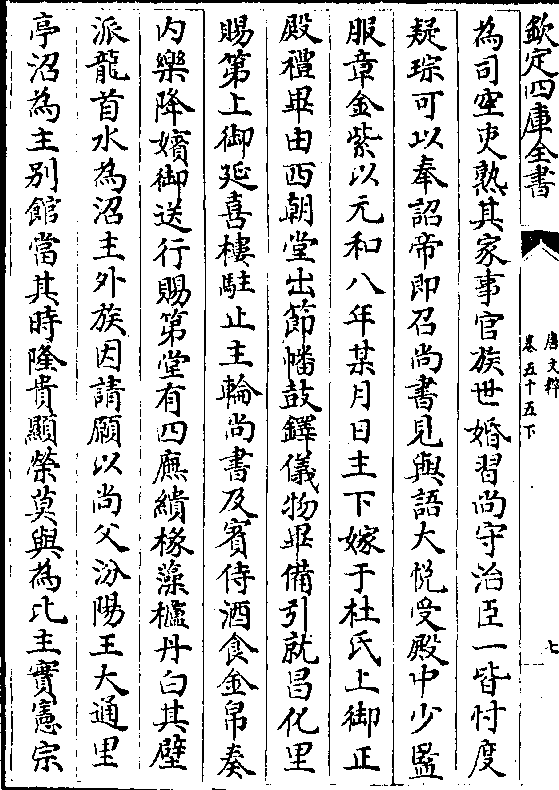 欽定四庫全書
唐文粹
卷五十五下
七
為司空吏熟其家事官族世婚習尚守治臣一皆忖度
疑琮可以奉詔帝即召尚書見與語大悦受殿中少監
服章金紫以元和八年某月日主下嫁于杜氏上御正
殿禮畢由西朝堂出節幡鼓鐸儀物畢備引就昌化里
賜第上御延喜樓駐止主輪尚書及賓侍酒食金帛奏
内樂降嬪御送行賜第堂有四廡繢椽藻櫨丹白其壁
派龍首水為沼主外族因請願以尚父汾陽王大通里
亭沼為主别館當其時隆貴顯榮莫與為比主實憲宗